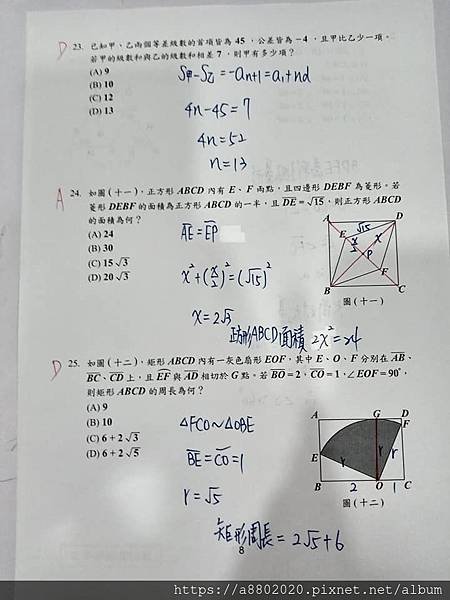 D 23. 已知甲、乙兩個等差級數的首項皆為 45，公差皆為 −4，且甲比乙少一項。
若甲的級數和與乙的級數和相差 7，則甲有多少項？
(A) 9
(B) 10
(C) 12
(D) 13
S甲−S乙=−an+1=a1+nd
4n−45=7
4n=52
n=13
A 24. 如圖(十一)，正方形 ABCD 內有 E、F 兩點，且四邊形 DEBF 為菱形。若
菱形 DEBF 的面積為正方形 ABCD 的一半，且 DE=√15，則正方形 ABCD
的面積為何？
(A) 24
(B) 30
(C) 15√3
(D) 20√3
AE=EP
x²+(x/2)²=(√15)²
x=2√3
正方形ABCD面積 2x²=24
A D
E √15
x/2 P x
F
B C
圖(十一)
D 25. 如圖(十二)，矩形 ABCD 內有一灰色扇形 EOF，其中 E、O、F 分別在 AB、
BC、CD 上，且 EF 與 AD 相切於 G 點。若 BO=2，CO=1，∠EOF=90°，
則矩形 ABCD 的周長為何？
(A) 9
(B) 10
(C) 6+2√3
(D) 6+2√5
△FCO~△OBE
BE=CO=1
r=√5
矩形周長=2√5+6
A G D
F
E r r r
B 2 O 1 C
圖(十二)
8
https://a8802020.pixnet.net/album